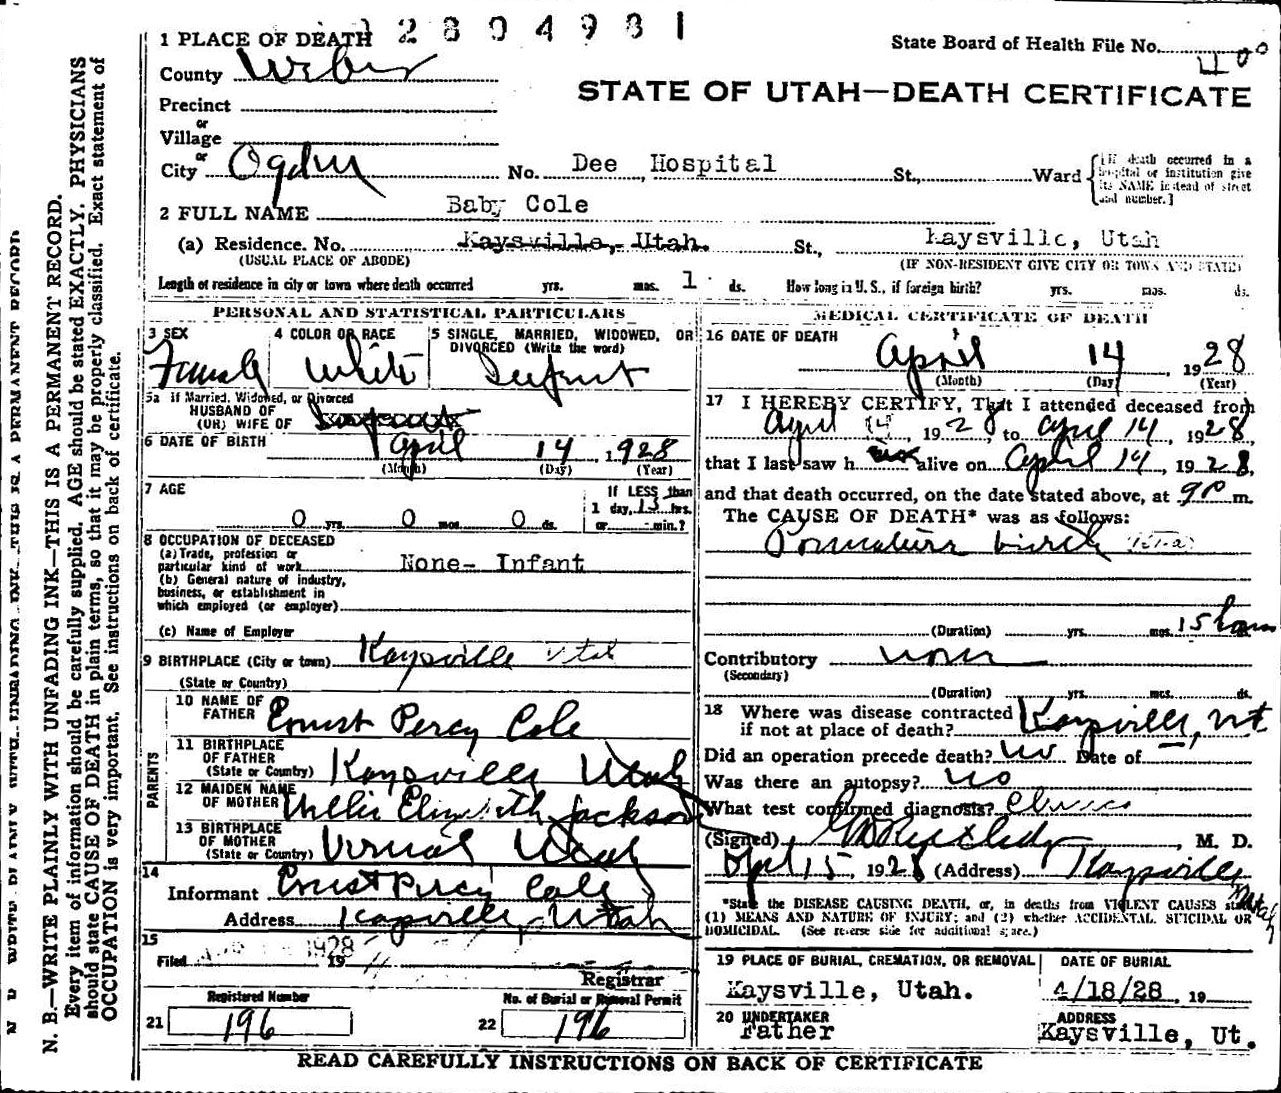 2804981
1 PLACE OF DEATH
State Board of Health File No.
County Weber
STATE OF UTAH—DEATH CERTIFICATE
Precinct
or
Village
or
City Ogden No. Dee Hospital St., Ward
[If death occurred in a
hospital or institution give
its NAME instead of street
and number.]
2 FULL NAME Baby Cole
(a) Residence. No. Kaysville, Utah. St., Kaysville, Utah
(USUAL PLACE OF ABODE) (IF NON-RESIDENT GIVE CITY OR TOWN AND STATE)
Length of residence in city or town where death occurred yrs. mos. 1 ds. How long in U. S., if foreign birth? yrs. mos. ds.
PERSONAL AND STATISTICAL PARTICULARS
3 SEX
Female
4 COLOR OR RACE
White
5 SINGLE, MARRIED, WIDOWED, OR
DIVORCED (Write the word)
Infant
5a If Married, Widowed, or Divorced
HUSBAND OF
(OR) WIFE OF
6 DATE OF BIRTH April 14, 1928
(Month) (Day) (Year)
7 AGE
0 yrs. 0 mos. 0 ds.
If LESS than
1 day, 15 hrs.
or min.?
8 OCCUPATION OF DECEASED
(a) Trade, profession or
particular kind of work None- Infant
(b) General nature of industry,
business, or establishment in
which employed (or employer)
(c) Name of Employer
9 BIRTHPLACE (City or town) Kaysville Utah
(State or Country)
PARENTS
10 NAME OF
FATHER Ernest Percy Cole
11 BIRTHPLACE
OF FATHER
(State or Country) Kaysville Utah
12 MAIDEN NAME
OF MOTHER Elizabeth Jackson
13 BIRTHPLACE
OF MOTHER
(State or Country) Vernal Utah
14
Informant Ernest Percy Cole
Address Kaysville, Utah
15
Filed 1928 19
Registrar
Registered Number
21 196
No. of Burial or Removal Permit
22 196
MEDICAL CERTIFICATE OF DEATH
16 DATE OF DEATH
April 14 1928
(Month) (Day) (Year)
17 I HEREBY CERTIFY, That I attended deceased from
April 14, 1928, to April 14, 1928,
that I last saw h alive on April 14, 1928,
and that death occurred, on the date stated above, at 9 P m.
The CAUSE OF DEATH* was as follows:
Premature birth
(Duration) yrs. mos. 15 hours
Contributory none
(Secondary)
(Duration) yrs. mos. ds.
18 Where was disease contracted
if not at place of death? Kaysville, Ut
Did an operation precede death? no Date of —
Was there an autopsy? no
What test confirmed diagnosis?
(Signed) , M. D.
April 15, 1928 (Address) Kaysville
Utah
*State the DISEASE CAUSING DEATH, or, in deaths from VIOLENT CAUSES state
(1) MEANS AND NATURE OF INJURY; and (2) whether ACCIDENTAL, SUICIDAL OR
HOMICIDAL. (See reverse side for additional space.)
19 PLACE OF BURIAL, CREMATION, OR REMOVAL
Kaysville, Utah.
DATE OF BURIAL
4/18/28, 19
20 UNDERTAKER
Father
ADDRESS
Kaysville, Ut.
READ CAREFULLY INSTRUCTIONS ON BACK OF CERTIFICATE
N. B.—WRITE PLAINLY WITH UNFADING INK—THIS IS A PERMANENT RECORD.
Every item of information should be carefully supplied. AGE should be stated EXACTLY. PHYSICIANS
should state CAUSE OF DEATH in plain terms, so that it may be properly classified. Exact statement of
OCCUPATION is very important. See instructions on back of certificate.